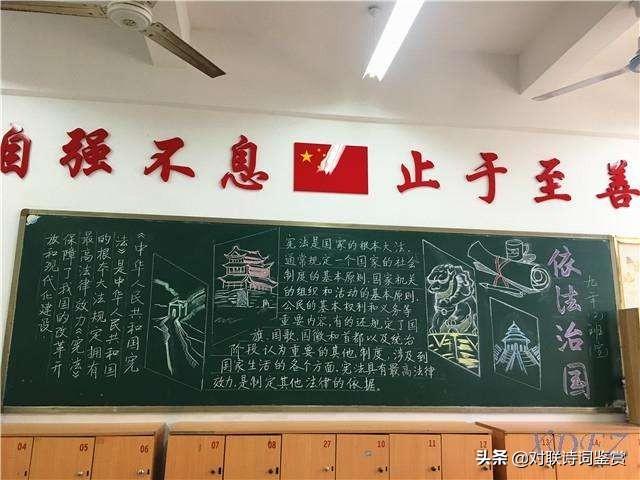 自强不息
止于至善
《中华人民共和国宪
法》是中华人民共和国
的根本大法,规定拥有
最高法律效力。《宪法》
保障了我国的改革开
放和现代化建设.
宪法是国家的根本大法,
通常规定一个国家的社会
制度的基本原则、国家机关
的组织和活动的基本原则,
公民的基本权利和义务等
重要内容,有的还规定了国
旗、国歌、国徽和首都以及统治
阶段认为重要的其他制度,涉及到
国家生活的各个方面.宪法具有最高法律
效力,是制定其他法律的依据。
依法治国
04
05
06
07
08
09
10
11
12
13
头条 @对联诗词鉴赏